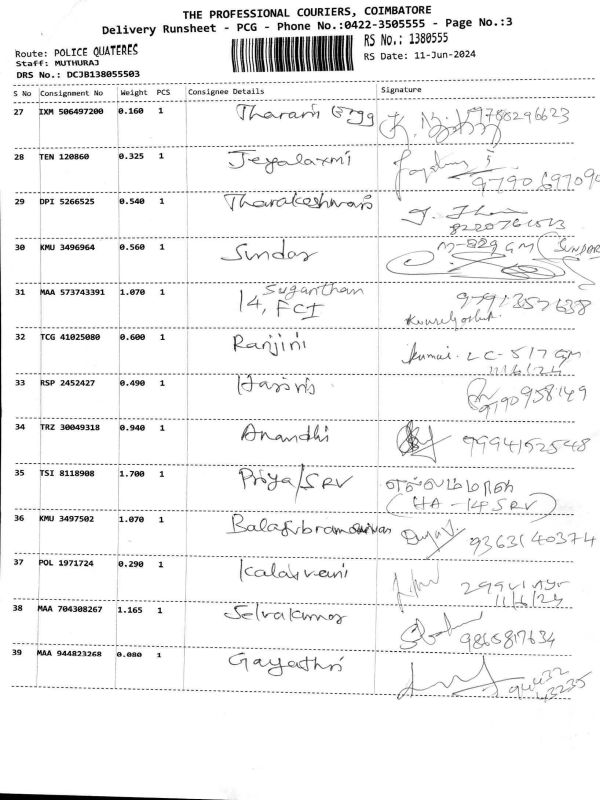 THE PROFESSIONAL COURIERS, COIMBATORE
Delivery Runsheet - PCG - Phone No.:0422-3505555 - Page No.:3
Route: POLICE QUATERES
Staff: MUTHURAJ
DRS No.: DCJB138055503
RS No.: 1380555
RS Date: 11-Jun-2024
S No Consignment No Weight PCS Consignee Details Signature
27 IXM 506497200 0.160 1 Tharani 9788296623
28 TEN 120860 0.325 1 Jeyalaxmi
29 DPI 5266525 0.540 1
30 KMU 3496964 0.560 1 Sundar
31 MAA 573743391 1.070 1 Suganthan
14, FCI
32 TCG 41025080 0.600 1 Ranjini Kumar. LC-517 GM
11/6/24
33 RSP 2452427 0.490 1 Harris
9790958149
34 TRZ 30049318 0.940 1 Anandhi 9994152548
35 TSI 8118908 1.700 1 Priya/SRV
(HA -14 SRV)
36 KMU 3497502 1.070 1 9363140374
37 POL 1971724 0.290 1 Kalaivani
11/6/24
38 MAA 704308267 1.165 1 Selvakumar 9865817634
39 MAA 944823268 0.080 1 Gayathri